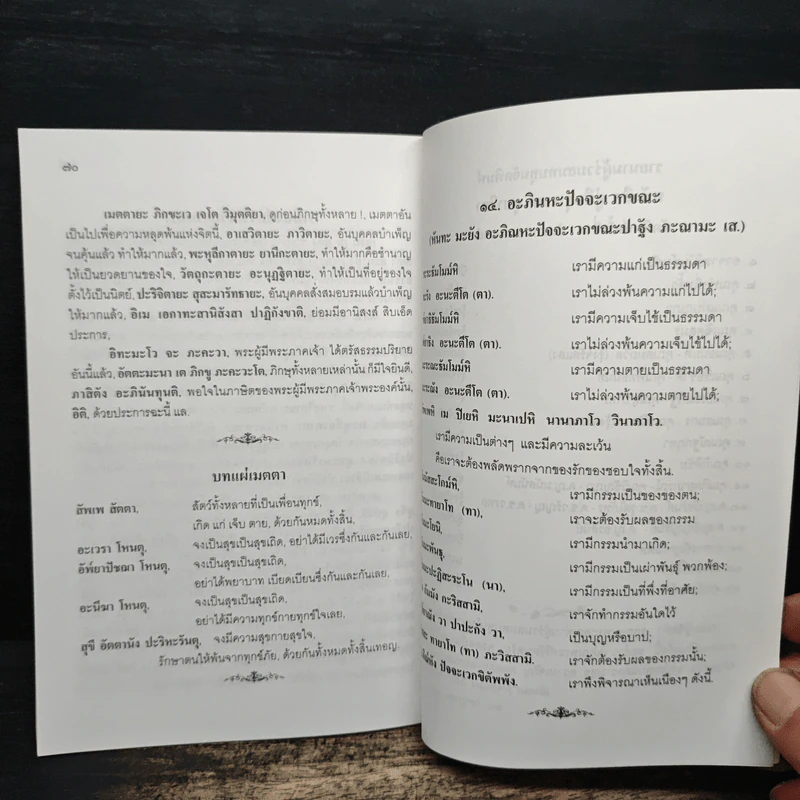 ๗๐
เมตตายะ ภิกขะเว เจโต วิมุตติยา, ดูก่อนภิกษุทั้งหลาย !, เมตตาอัน
เป็นไปเพื่อความหลุดพ้นแห่งจิตนี้, อาเสวิตายะ ภาวิตายะ, อันบุคคลบำเพ็ญ
จนคุ้นแล้ว ทำให้มากแล้ว, พะหุลีกาตายะ ยานีกะตายะ, ทำให้มากคือชำนาญ
ให้เป็นยวดยานของใจ, วัตถุกะตายะ อะนุฏฐิตายะ, ทำให้เป็นที่อยู่ของใจ
ตั้งไว้เป็นนิตย์, ปะริจิตายะ สุสะมารัทธายะ, อันบุคคลสั่งสมอบรมแล้วบำเพ็ญ
ให้มากแล้ว, อิเม เอกาทะสานิสังสา ปาฏิกังขาติ, ย่อมมีอานิสงส์ สิบเอ็ด
ประการ,
อิทะมะโว จะ ภะคะวา, พระผู้มีพระภาคเจ้า ได้ตรัสธรรมปริยาย
อันนี้แล้ว, อัตตะมะนา เต ภิกขู ภะคะวะโต, ภิกษุทั้งหลายเหล่านั้น ก็มีใจยินดี,
ภาสิตัง อะภินันทุนติ, พอใจในภาษิตของพระผู้มีพระภาคเจ้าพระองค์นั้น,
อิติ, ด้วยประการฉะนี้ แล.
บทแผ่เมตตา
สัพเพ สัตตา, สัตว์ทั้งหลายที่เป็นเพื่อนทุกข์,
เกิด แก่ เจ็บ ตาย, ด้วยกันหมดทั้งสิ้น,
อะเวรา โหนตุ, จงเป็นสุขเป็นสุขเถิด, อย่าได้มีเวรซึ่งกันและกันเลย,
อัพ์ยาปัชฌา โหนตุ, จงเป็นสุขเป็นสุขเถิด,
อย่าได้พยาบาท เบียดเบียนซึ่งกันและกันเลย,
อะนีฆา โหนตุ, จงเป็นสุขเป็นสุขเถิด,
อย่าได้มีความทุกข์กายทุกข์ใจเลย,
สุขี อัตตานัง ปะริหะรันตุ, จงมีความสุขกายสุขใจ,
รักษาตนให้พ้นจากทุกข์ภัย, ด้วยกันทั้งหมดทั้งสิ้นเทอญ.
๑๔. อะภินหะปัจจะเวกขณะ
(หันทะ มะยัง อะภิณหะปัจจะเวกขะณะปาฐัง ภะณามะ เส.)
ะระธัมโมม์หิ เรามีความแก่เป็นธรรมดา
อะนะตีโต (ตา). เราไม่ล่วงพ้นความแก่ไปได้;
าธิธัมโมม์หิ เรามีความเจ็บไข้เป็นธรรมดา
อะนะตีโต (ตา). เราไม่ล่วงพ้นความเจ็บไข้ไปได้;
ะระณะธัมโมม์หิ เรามีความตายเป็นธรรมดา
อะนะตีโต (ตา). เราไม่ล่วงพ้นความตายไปได้;
เม ปิเยหิ มะนาเปหิ นานาภาโว วินาภาโว.
เรามีความเป็นต่างๆ และมีความละเว้น
คือเราจะต้องพลัดพรากจากของรักของชอบใจทั้งสิ้น.
มัสสะโกม์หิ, เรามีกรรมเป็นของของตน;
ะทายาโท (ทา), เราจะต้องรับผลของกรรม
ะโยนิ, เรามีกรรมนำมาเกิด;
ะพันธุ, เรามีกรรมเป็นเผ่าพันธุ์ พวกพ้อง;
ะปะฏิสะระโน (นา), เรามีกรรมเป็นที่พึ่งที่อาศัย;
กะริสสามิ, เราจักทำกรรมอันใดไว้
วา ปาปะกัง วา, เป็นบุญหรือบาป;
ะ ทายาโท (ทา) ภะวิสสามิ. เราจักต้องรับผลของกรรมนั้น;
ปัจจะเวกขิตัพพัง. เราพึงพิจารณาเห็นเนืองๆ ดังนี้.